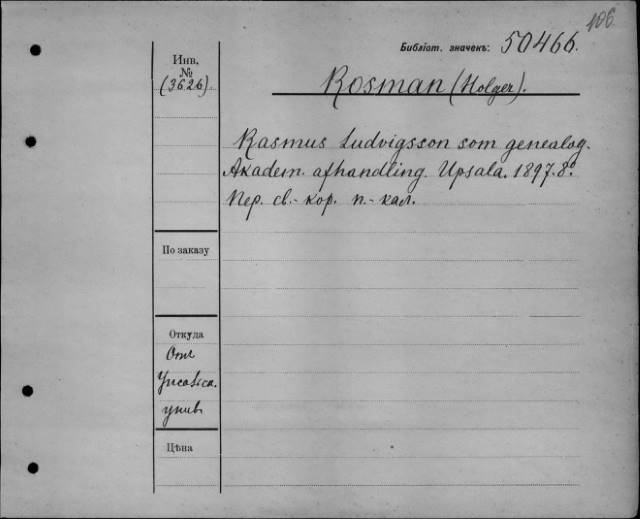 106.
Библіот. значекъ: 50466.
Инв.
№
(3626).
Rosman (Holger).
Rasmus Ludvigsson som genealog.
Akadem. afhandling. Upsala. 1897. 8º.
Пер. св.-кор. п.-кал.
По заказу
Откуда
От
унив
Цѣна